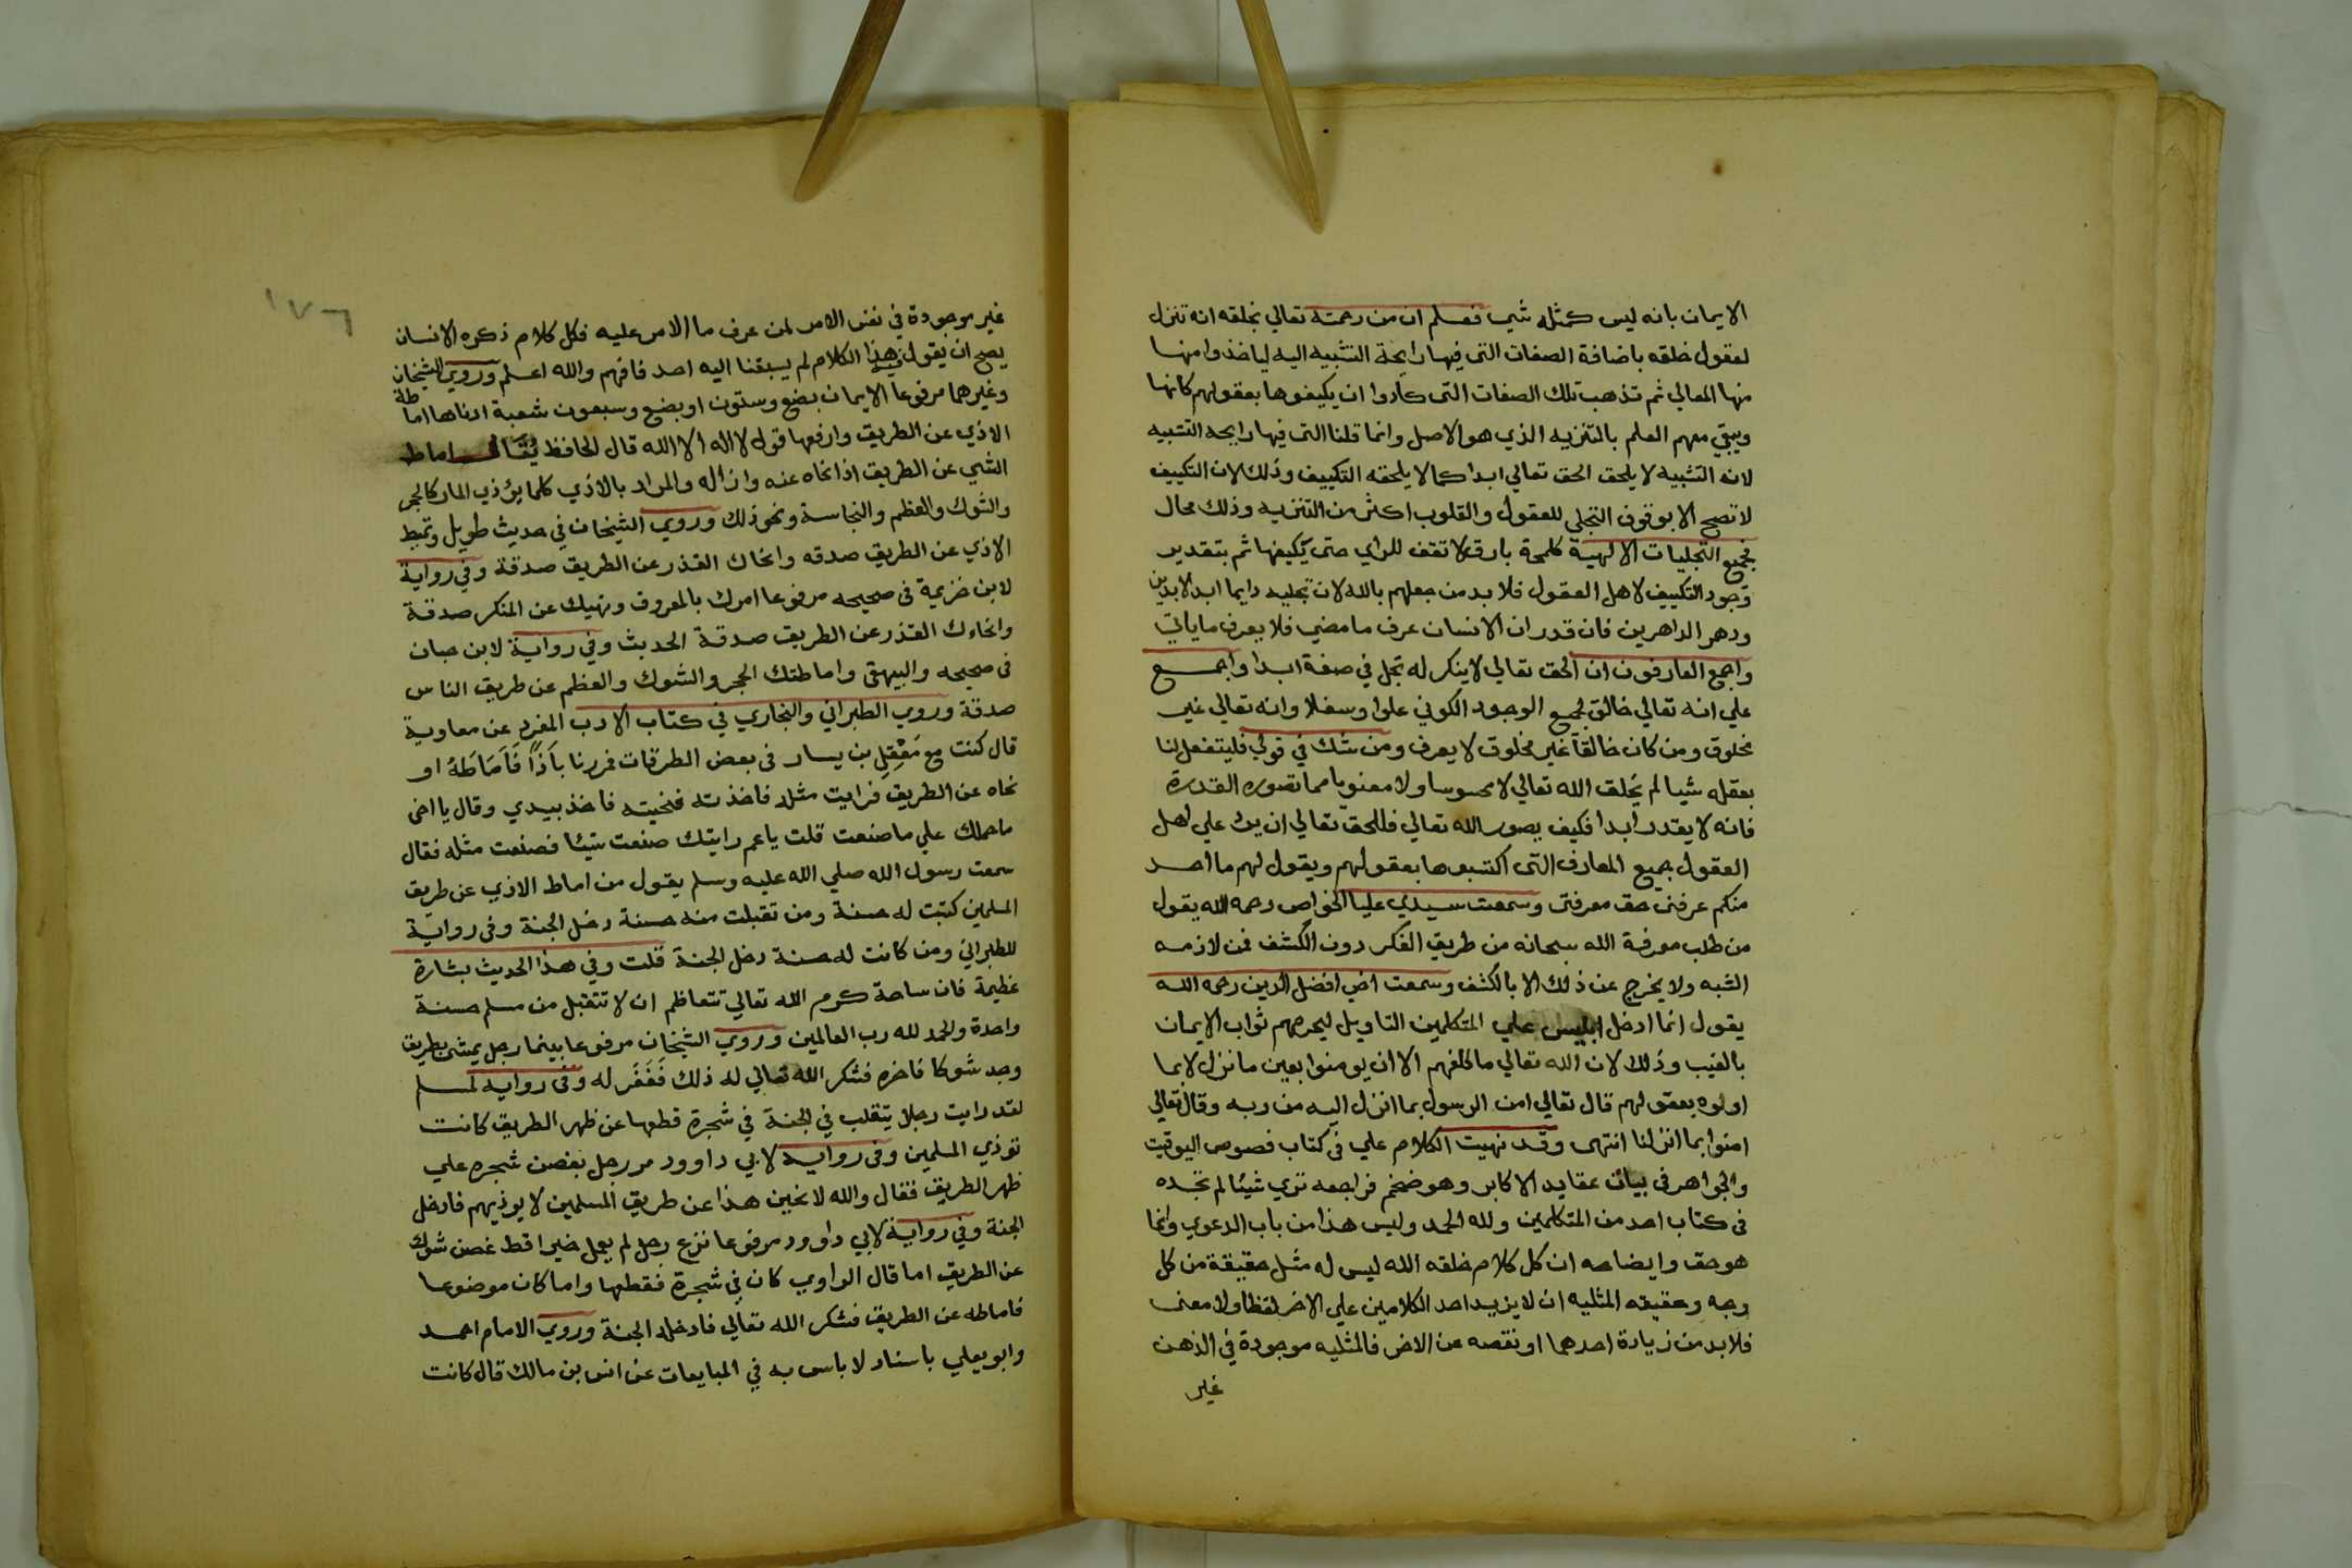 الايمان بانه ليس كمثله شي فعلم ان من رحمة تعالي بخلقه انه تنزل
لعقول خلقه باضافة الصفات التي فيها رايحة التشبيه اليه لياخذوا منها
منها المعالي ثم تذهب تلك الصفات التي كادوا ان يكيفوها بعقولهم كانها
ويبقي معهم العلم بالتنزيه الذي هو الاصل وانما قلنا التي فيها رايحه التشبيه
لان التشبيه لا يلحق الحق تعالي ابدا كما لا يلحقه التكييف وذلك لان التكييف
لا تصح الا بوقوف التجلي للعقول والقلوب اكثر من التنزيه وذلك محال
فجميع التجليات الالهية كلمحة بارق لا تقف للراي حتي يكيفها ثم بتقدير
وجود التكييف لاهل العقول فلا بد من جهلهم بالله لان تجليه دايما ابد الابدين
ودهر الداهرين فان قدر ان الانسان عرف ما مضي فلا يعرف ما ياتي
واجمع العارفون ان الحق تعالي لا ينكر له تجل في صفة ابدا واجمع
علي انه تعالي خالق لجميع الوجود الكوني علوا وسفلا وانه تعالي غير
مخلوق ومن كان خالقا غير مخلوق لا يعرف ومن شك في قولي فليتفعل لنا
بعقله شيا لم يخلق الله تعالي لا محسوسا ولا معنويا مما تصوره القدرة
فانه لا يقدر ابدا فكيف بصور الله تعالي فللحق تعالي ان يرد علي اهل
العقول جميع المعارف التي اكتسبوها بعقولهم ويقول لهم ما احد
منكم عرفني حق معرفتي وسمعت سيدي عليا الخواص رحمه الله يقول
من طلب معرفة الله سبحانه من طريق الفكر دون الكشف فمن لازمه
الشبه ولا يخرج عن ذلك الا بالكشف وسمعت اخي افضل الدين رحمه الله
يقول انما ادخل ابليس علي المتكلمين التاويل ليحرمهم ثواب الايمان
بالغيب وذلك لان الله تعالي ما كلفهم الا ان يومنوا بعين ما نزل لا بما
اولوه بعقولهم قال تعالي امن الرسول بما انزل اليه من ربه وقال تعالي
امنوا بما انزلنا انتهي وقد نهيت الكلام علي في كتاب فصوص اليوقيت
والجواهر في بيان عقايد الاكابر وهو ضخم فراجعه تري شيئا لم تجده
في كتاب احد من المتكلمين ولله الحمد وليس هذا من باب الدعوي وانما
هو حق وايضاحه ان كل كلام خلقه الله ليس له مثل حقيقة من كل
وجه وحقيقه المثليه ان لا يزيد احد الكلامين علي الاخر لفظا ولا معني
فلا بد من زيادة احدهما او نقصه عن الاخر فالمثليه موجودة في الذهن
غير
١٧٦
غير موجودة في نفس الامر لمن عرف ما الامر عليه فكل كلام ذكره الانسان
يصح ان يقول هذا الكلام لم يسبقنا اليه احد فافهم والله اعلم وروي الشيخان
وغيرهما مرفوعا الايمان بضع وستون او بضع وسبعون شعبة ادناها اماطة
الاذي عن الطريق وارفعها قول لا اله الا الله قال الحافظ يُقَالُ اماط
الشي عن الطريق اذا نحاه عنه وازاله والمراد بالاذي كلما يؤذي المار كالحجر
والشوك والعظم والنجاسة ونحو ذلك وروي الشيخان في حديث طويل وتميط
الاذي عن الطريق صدقه وانحاك القذر عن الطريق صدقة وفي رواية
لابن خزيمة في صحيحه مرفوعا امرك بالمعروف ونهيك عن المنكر صدقة
وانحاءك القذر عن الطريق صدقة الحديث وفي رواية لابن حبان
في صحيحه والبيهقي واماطتك الحجر والشوك والعظم عن طريق الناس
صدقة وروي الطبراني والبخاري في كتاب الادب المفرد عن معاوية
قال كنت مع مَعْقِلِ بن يسار في بعض الطرقات فمررنا بِاَذًا فَاَمَاطَهُ او
نحاه عن الطريق فرايت مثله فاخذته فنحيته فاخذ بيدي وقال يا اخي
ما حملك علي ما صنعت قلت يا عم رايتك صنعت شيئا فصنعت مثله فقال
سمعت رسول الله صلي الله عليه وسلم يقول من اماط الاذي عن طريق
المسلمين كتبت له حسنة ومن تقبلت منه حسنة دخل الجنة وفي رواية
للطبراني ومن كانت له حسنة دخل الجنة قلت وفي هذا الحديث بشارة
عظيمة فان ساحة كرم الله تعالي تتعاظم ان لا تتقبل من مسلم حسنة
واحدة والحمد لله رب العالمين وروي الشيخان مرفوعا بينما رجل يمشي بطريق
وجد شوكا فاخره فشكر الله تعالي له ذلك فَغَفَر له وفي روايه لمسلم
لقد رايت رجلا يتقلب في الجنة في شجرة قطعها عن ظهر الطريق كانت
توذي المسلمين وفي روايه لابي داوود مر رجل بغصن شجره علي
ظهر الطريق فقال والله لانحين هذا عن طريق المسلمين لا يوذيهم فادخل
الجنة وفي رواية لابي داوود مرفوعا نزع رجل لم يعمل خيرا قط غصن شوك
عن الطريق اما قال الراوي كان في شجرة فقطعها واما كان موضوعا
فاماطه عن الطريق فشكر الله تعالي فادخله الجنة وروي الامام احمد
وابو يعلي باسناد لا باس به في المبايعات عن انس بن مالك قال كانت